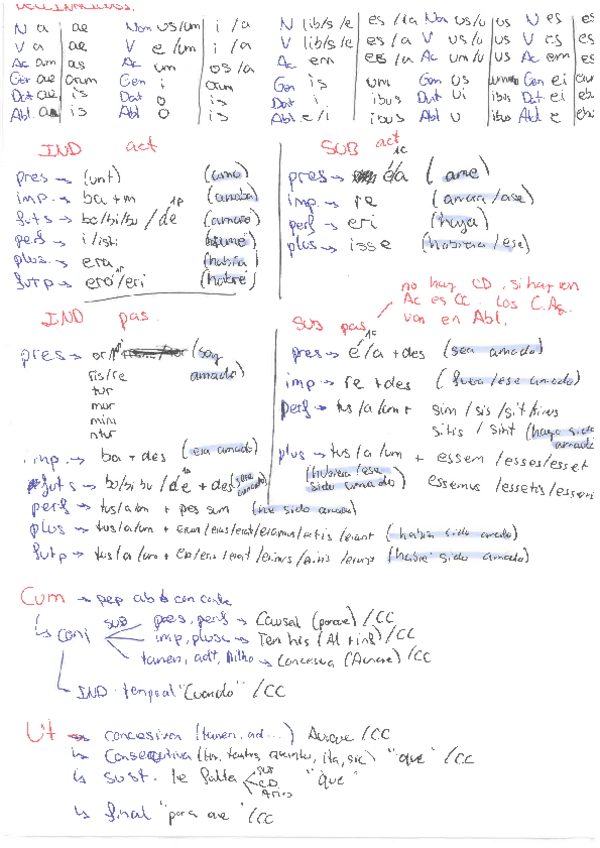 DECLINACIONES.
N a ae Non us/um i /a N lib/s/e es /ia Non us/u us N es es
V a ae V e /um i /a V lib/s/e es /a V us/u us V es es
Ac am as Ac um os /a Ac em es /a Ac um/u us Ac em es
Gen ae arum Gen i orum Gen is um Gen us uum Gen ei
Dat ae is Dat o is Dat i ibus Dat ui ibus Dat ei
Abl. a is Abl o is Abl. e/i ibus Abl u ibus Abl e
IND act
pres → (unt) (amo)
imp. → ba+m (amaba)
futs → bo/bi/bu /a/e 1p (amaré)
perf → i/isti
plus. → era (había)
futp → ero/eri (habré)
SUB act
pres → é/a 1C (ame)
imp. → re (amara/ase)
perf → eri (haya)
plus → isse (hubiera/ese)
no hay CD, si hay en
Ac es CC. Los C.Ag.
van en Abl.
IND pas.
pres → or/ (soy
ris/re amado)
tur
mur
mini
ntur
imp. → ba + des (era amado)
futs → bo/bi bu /a/e + des (seré amado)
perf → tus/a/um + pes sum (he sido amado)
plus → tus/a/um + eram/eras/erat/eramus/eratis/erant (había sido amado)
futp → tus/a/um + ero/eris/erit/erimus/eritis/erunt (habré sido amado)
SUB pas
pres → é/a + des (sea amado) 1C
imp → re + des (fuera/ese amado)
perf → tus/a/um + sim / sis / sit/simus
sitis / sint (haya sido amado)
plus → tus/a/um + essem /esses/esset
(hubiera/ese sido amado) essemus /essetis/essent
Cum → pep abl con
↳ conj SUB pres, perf → Causal (porque) /CC
imp, plusc → Tem his (Al + inf) /CC
tamen, adt, nihilo → Concesiva (Aunque) /CC
IND temporal "Cuando" /CC
Ut → concesiva (tamen, ad...) Aunque /CC
↳ Consecutiva (tam, tantus, ita, sic) "que" /CC
↳ sust. le falta SUJ CD "que"
↳ final "para que" /CC